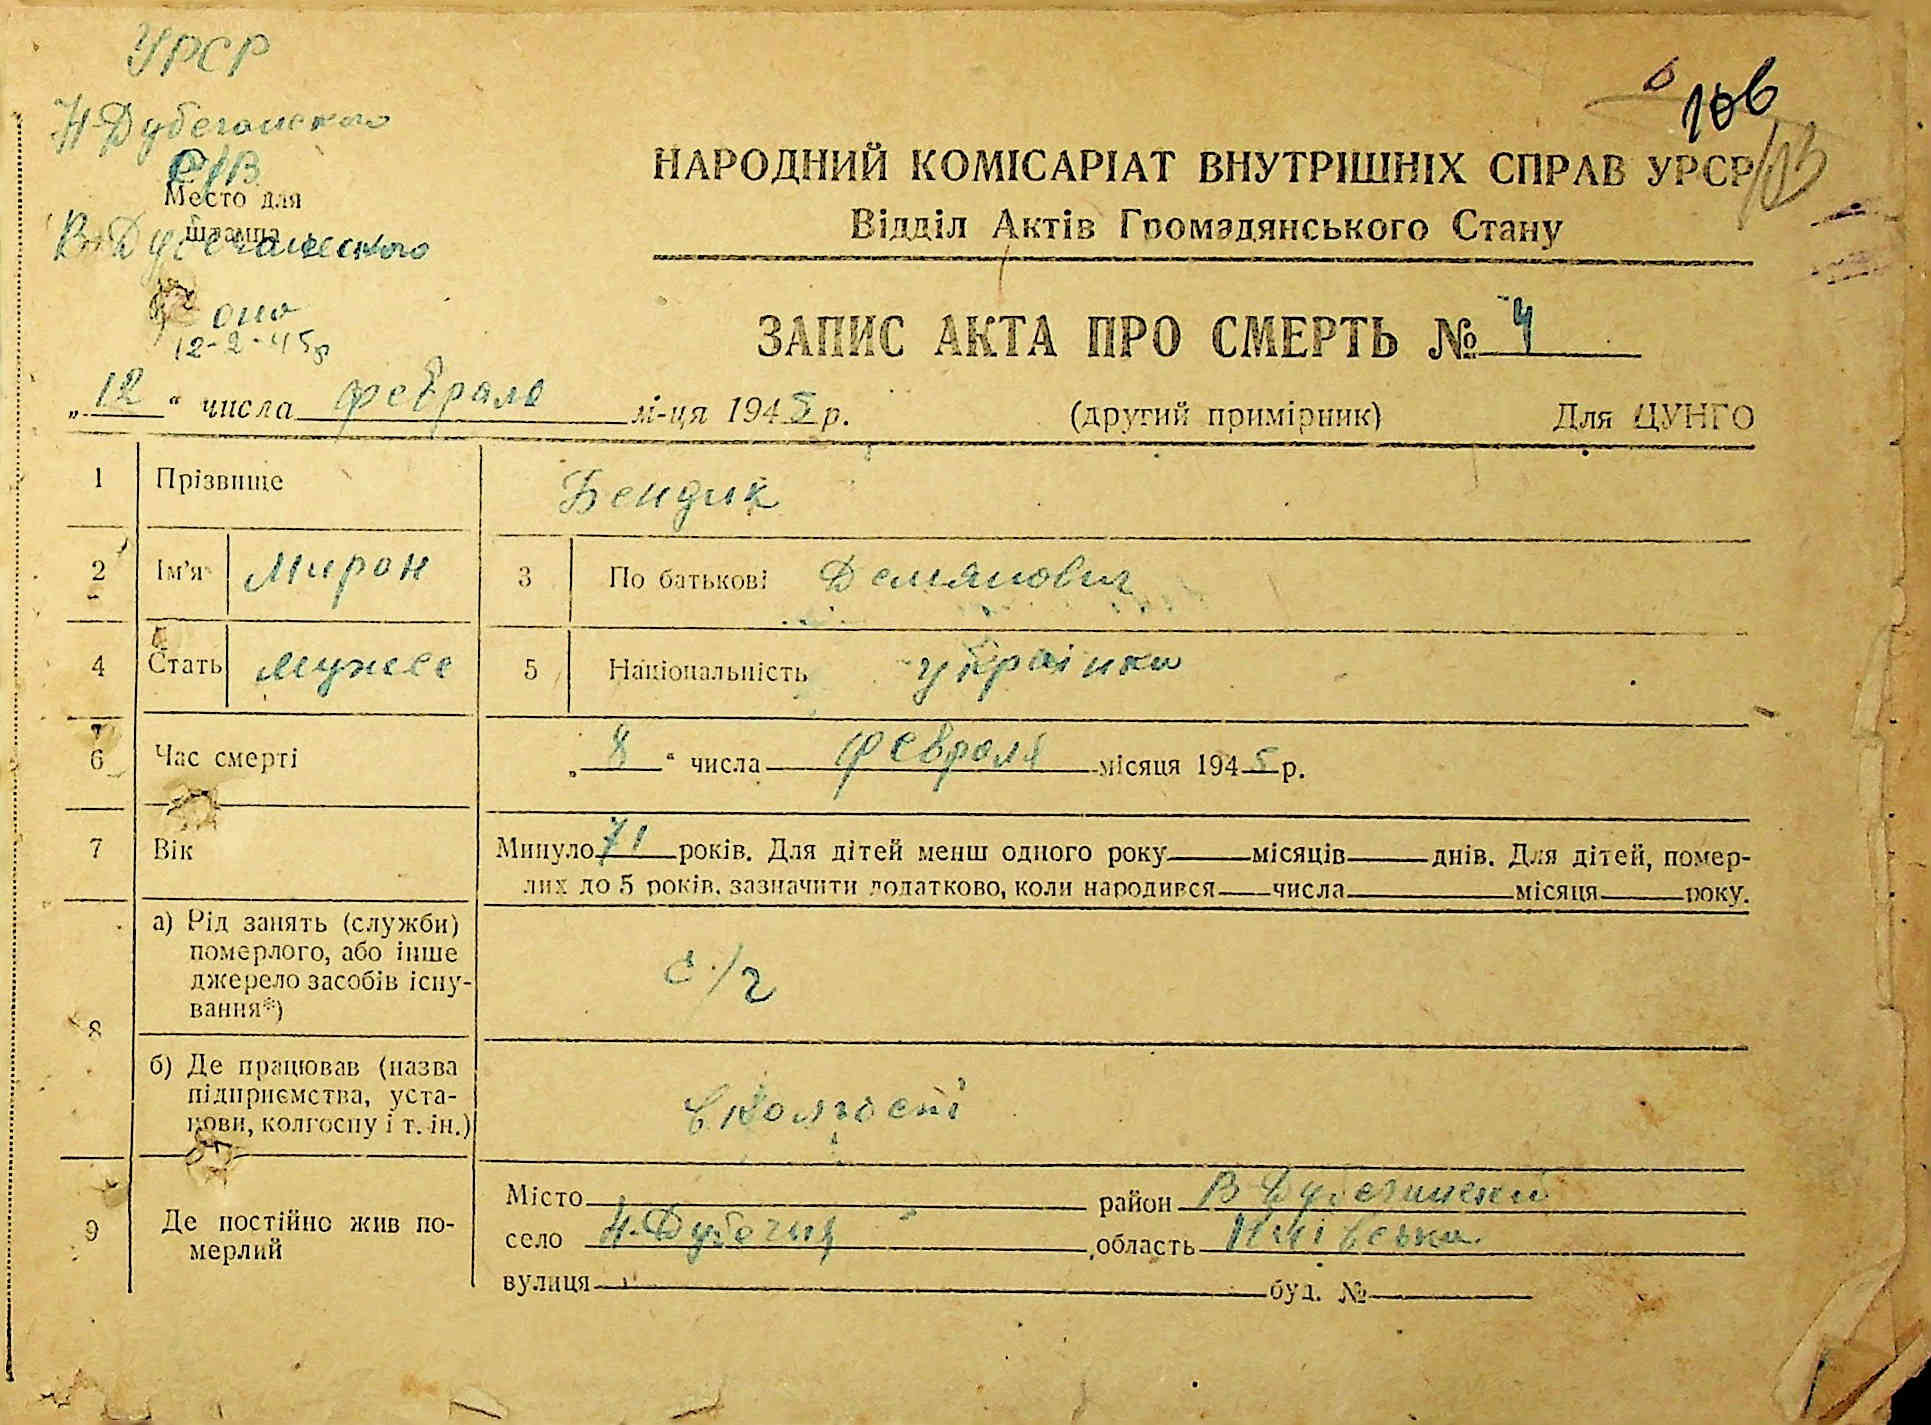 УРСР
Н-Дубечанского
С/В
Место для
штампа
В-Дубечанского
12-2-45р
106
103
НАРОДНИЙ КОМІСАРІАТ ВНУТРІШНІХ СПРАВ УРСР
Відділ Актів Громадянського Стану
ЗАПИС АКТА ПРО СМЕРТЬ № 4
„12“ числа февраля м-ця 1945 р.
(другий примірник) Для ЦУНГО
1 Прізвище Бендик
2 Ім'я Мирон 3 По батькові Демянович
4 Стать мужсе 5 Національність українка
6 Час смерті „8“ числа февраля місяця 1945 р.
7 Вік Минуло 71 років. Для дітей менш одного року місяців днів. Для дітей, помер-
лих до 5 років, зазначити додатково, коли народився числа місяця року.
8 а) Рід занять (служби)
померлого, або інше
джерело засобів існу-
вання*)
с/г
б) Де працював (назва
підприємства, уста-
нови, колгоспу і т. ін.)
9 Де постійно жив по-
мерлий
Місто район В-Дубечанский
село Н-Дубечня область
вулиця буд. №